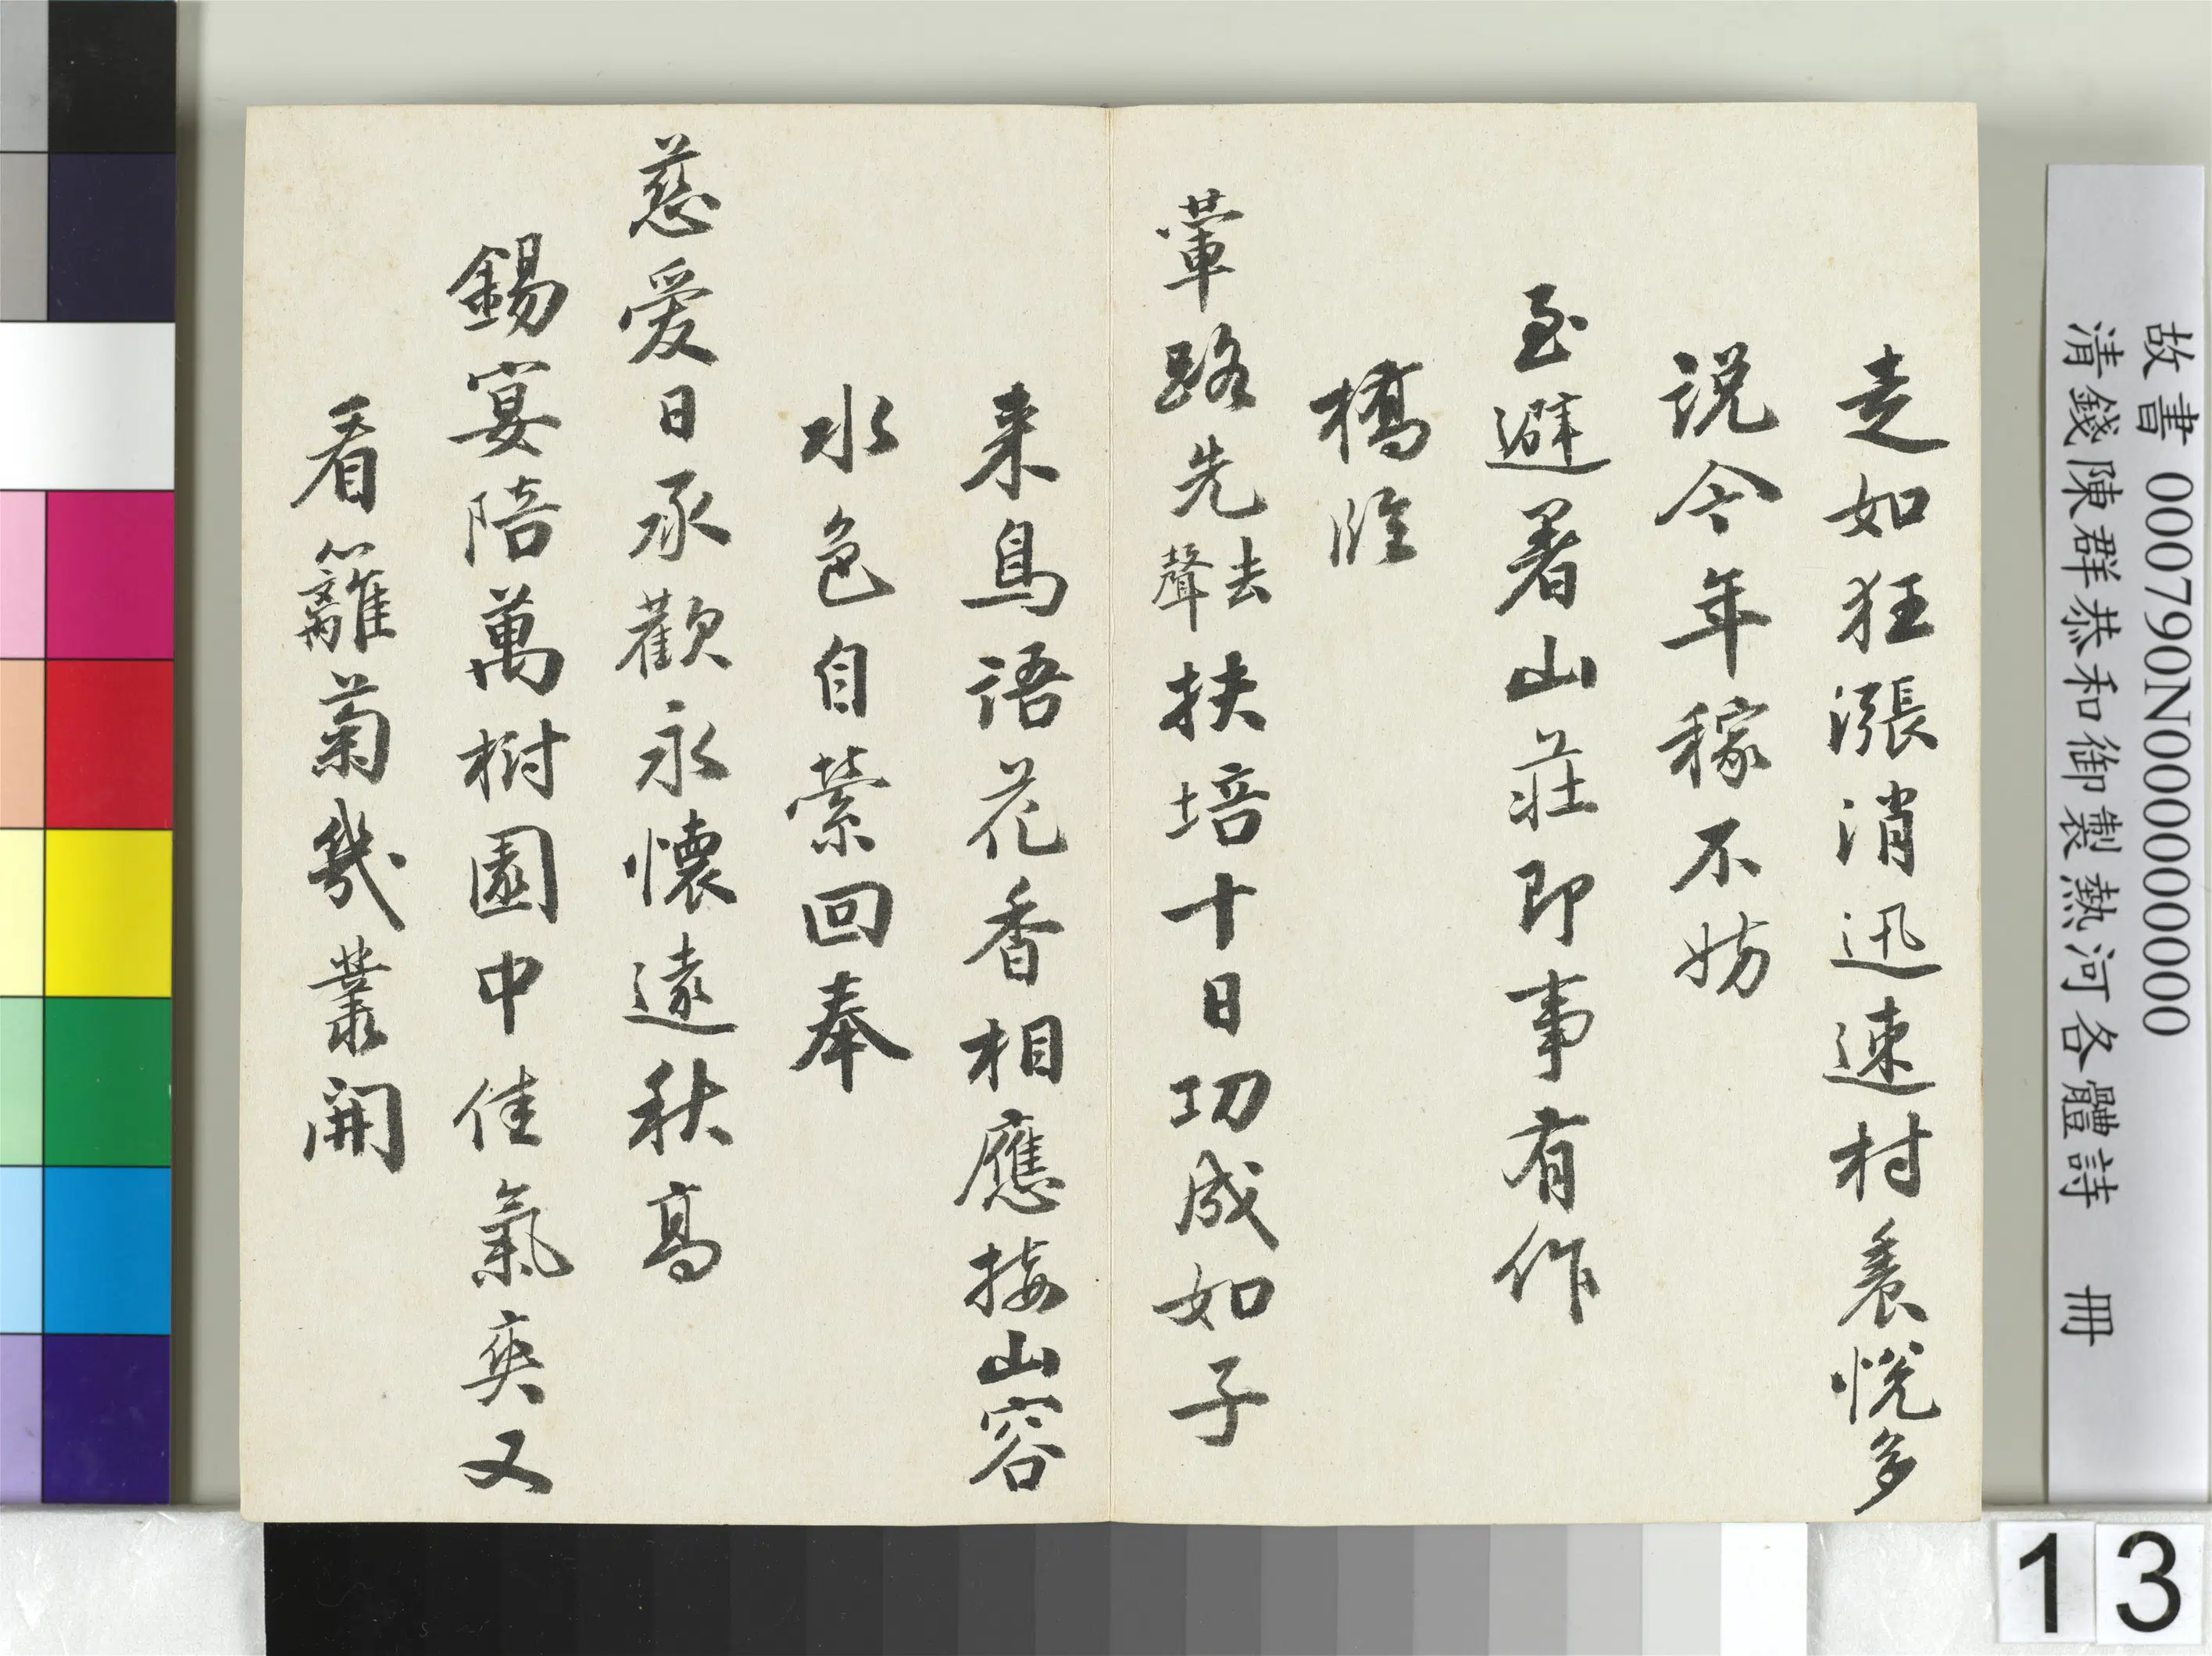 走如狂漲消迅速村養恍多
説今年稼不妨
至避暑山莊即事有作
橋陰
輦路先去聲扶培十日功成如子
来鳥語花香相應接山容
水色自縈回奉
慈愛日承歡永懷遠秋高
錫宴陪萬樹園中佳氣爽又
看籬菊幾叢開
故書 000790N000000000
清錢陳群恭和御製熱河各體詩 冊
13